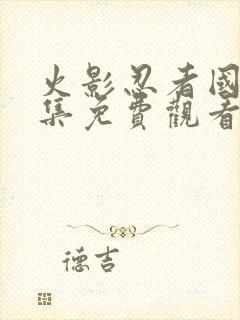 火影忍者國
集免費觀看
德吉